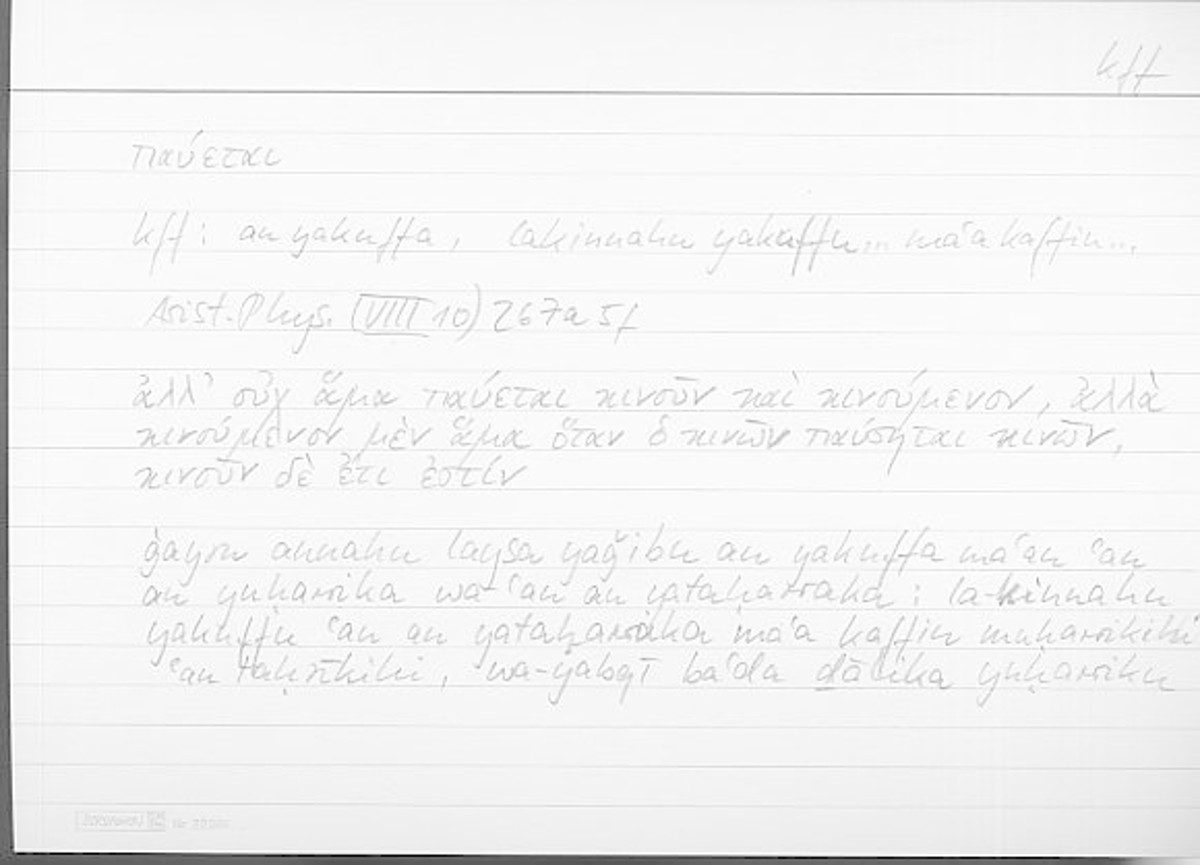 kff
παύεται
kff: an yakuffa, lakinnahu yakuffu... maʿa kaffin...
Arist. Phys. (VIII 10) 267a 5f
ἀλλ' οὐχ ἅμα παύεται κινοῦν καὶ κινούμενον, ἀλλὰ
κινούμενον μὲν ἅμα ὅταν ὁ κινῶν παύσηται κινῶν,
κινοῦν δὲ ἔτι ἐστίν
ġayru annahu laysa yaǧibu an yakuffa maʿan ʿan
an yuḥarrika wa-ʿan an yataḥarraka: la-kinnahu
yakuffu ʿan an yataḥarraka maʿa kaffin muḥarrikihi
ʿan taḥrīkihi, wa-yabqī baʿda ḏālika yuḥarriku